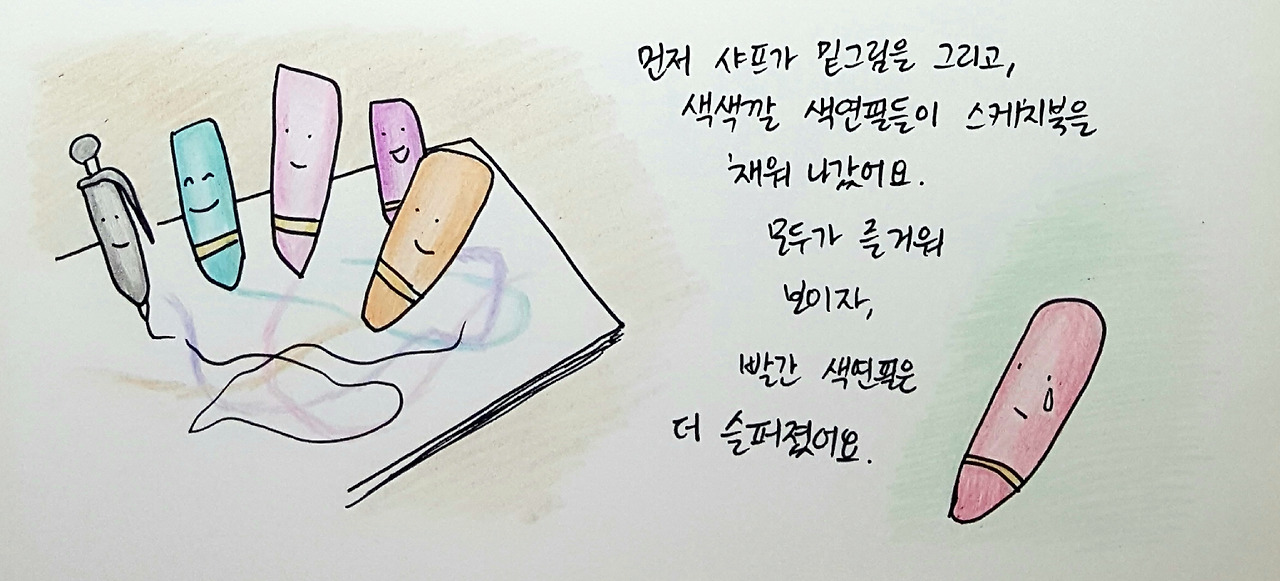 먼저 샤프가 밑그림을 그리고,
색색깔 색연필들이 스케치북을
채워 나갔어요.
모두가 즐거워
보이자,
빨간 색연필은
더 슬퍼졌어요.